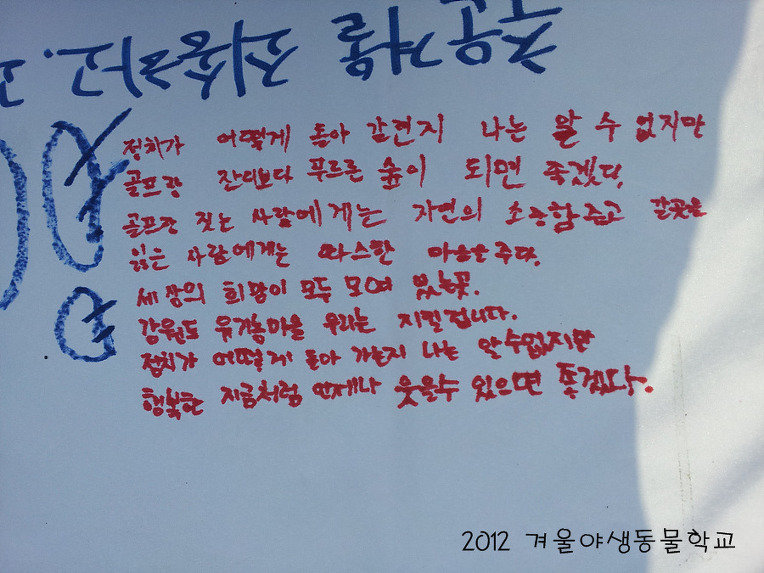 정치가 어떻게 돌아 갈런지 나는 알 수 없지만
골프장 잔디보다 푸르른 숲이 되면 좋겠다.
골프장 짓는 사람에게는 자연의 소중함 주고 갈곳을
잃은 사람에게는 따스한 마음은 주다.
세상의 희망이 모두 모여 있는곳.
강원도 유기농마을 우리는 지킬겁니다.
정치가 어떻게 돌아 가는지 나는 알수없지만
행복한 지금처럼 언제나 웃을수 있으면 좋겠다.
2012 겨울야생동물학교